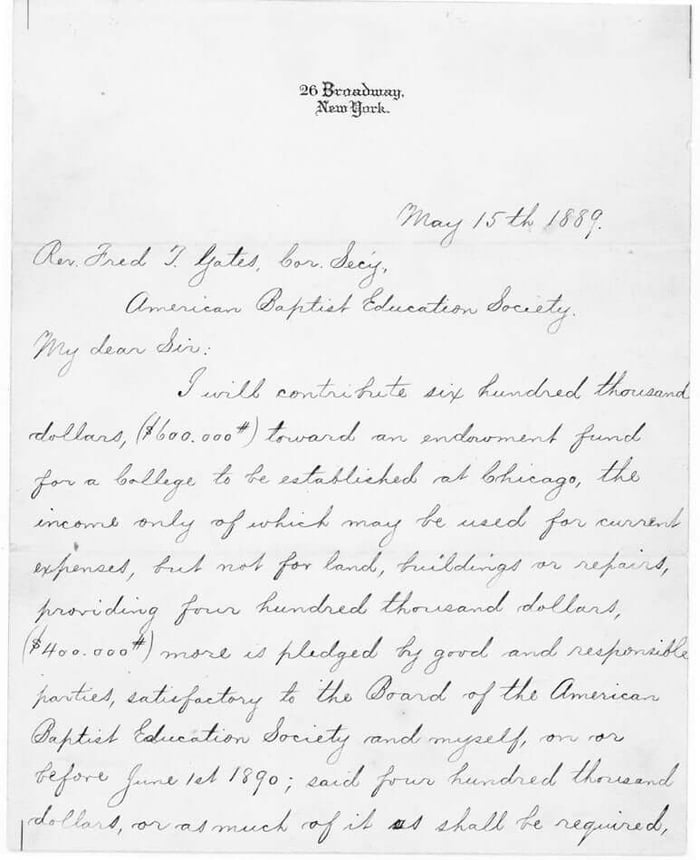 26 Broadway.
New York.
May 15th 1889.
Rev. Fred T. Gates, Cor. Secy,
American Baptist Education Society.
My dear Sir:
I will contribute six hundred thousand
dollars, ($600.000#) toward an endowment fund
for a College to be established at Chicago, the
income only of which may be used for current
expenses, but not for land, buildings or repairs,
providing four hundred thousand dollars,
($400.000#) more is pledged by good and responsible
parties, satisfactory to the Board of the American
Baptist Education Society and myself, on or
before June 1st 1890; said four hundred thousand
dollars, or as much of it as shall be required,